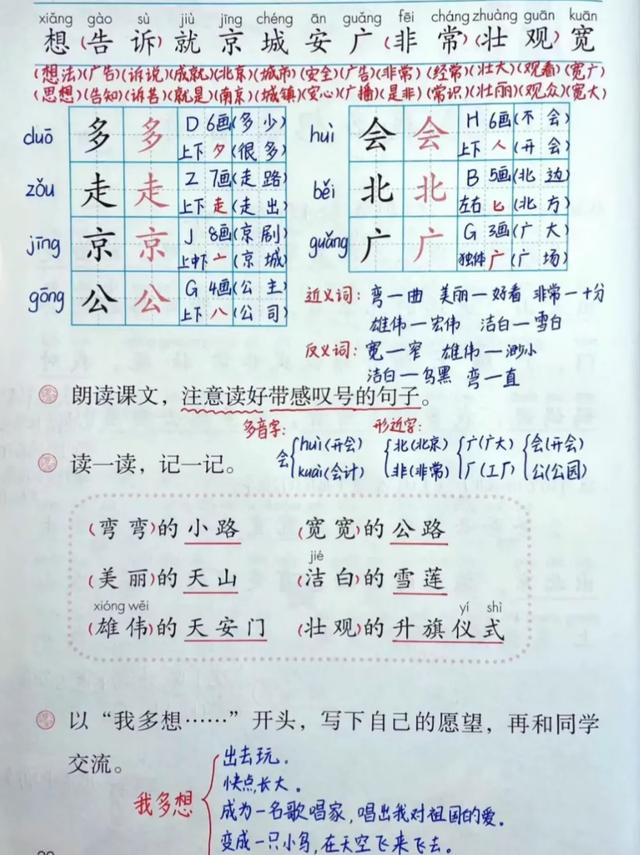 xiǎng gào sù jiù jīng chéng ān guǎng fēi cháng zhuàng guān kuān
想(告诉)就京城安广(非常)(壮观)宽
(想法)(广告)(诉说)(成就)(北京)(城市)(安全)(广告)(非常)(经常)(壮大)(观看)(宽广)
(思想)(告知)(诉苦)(就是)(南京)(城镇)(安心)(广播)(是非)(常识)(壮丽)(观众)(宽大)
duō 多 多 D 6画(多少)
上下 夕(很多)
zǒu 走 走 Z 7画(走路)
上下 走(走出)
jīng 京 京 J 8画(京剧)
上中下 亠(京城)
gōng 公 公 G 4画(公主)
上下 八(公司)
huì 会 会 H 6画(不会)
上下 人(开会)
běi 北 北 B 5画(北边)
左右 匕(北方)
guǎng 广 广 G 3画(广大)
独体 广(广场)
近义词: 弯一曲 美丽一好看 非常一十分
雄伟一宏伟 洁白一雪白
反义词: 宽一窄 雄伟一渺小
洁白一乌黑 弯一直
朗读课文，注意读好带感叹号的句子。
多音字: 形近字:
会 huì(开会) 北(北京) 广(广大) 会(开会)
kuài(会计) 非(非常) 厂(工厂) 公(公园)
读一读，记一记。
(弯弯)的小路 (宽宽)的公路
jié
(美丽)的天山 (洁白)的雪莲
xióng wěi yí shì
(雄伟)的天安门 (壮观)的升旗仪式
以“我多想……”开头，写下自己的愿望，再和同学
交流。
我多想 出去玩.
快点长大.
成为一名歌唱家,唱出我对祖国的爱.
变成一只小鸟,在天空飞来飞去.